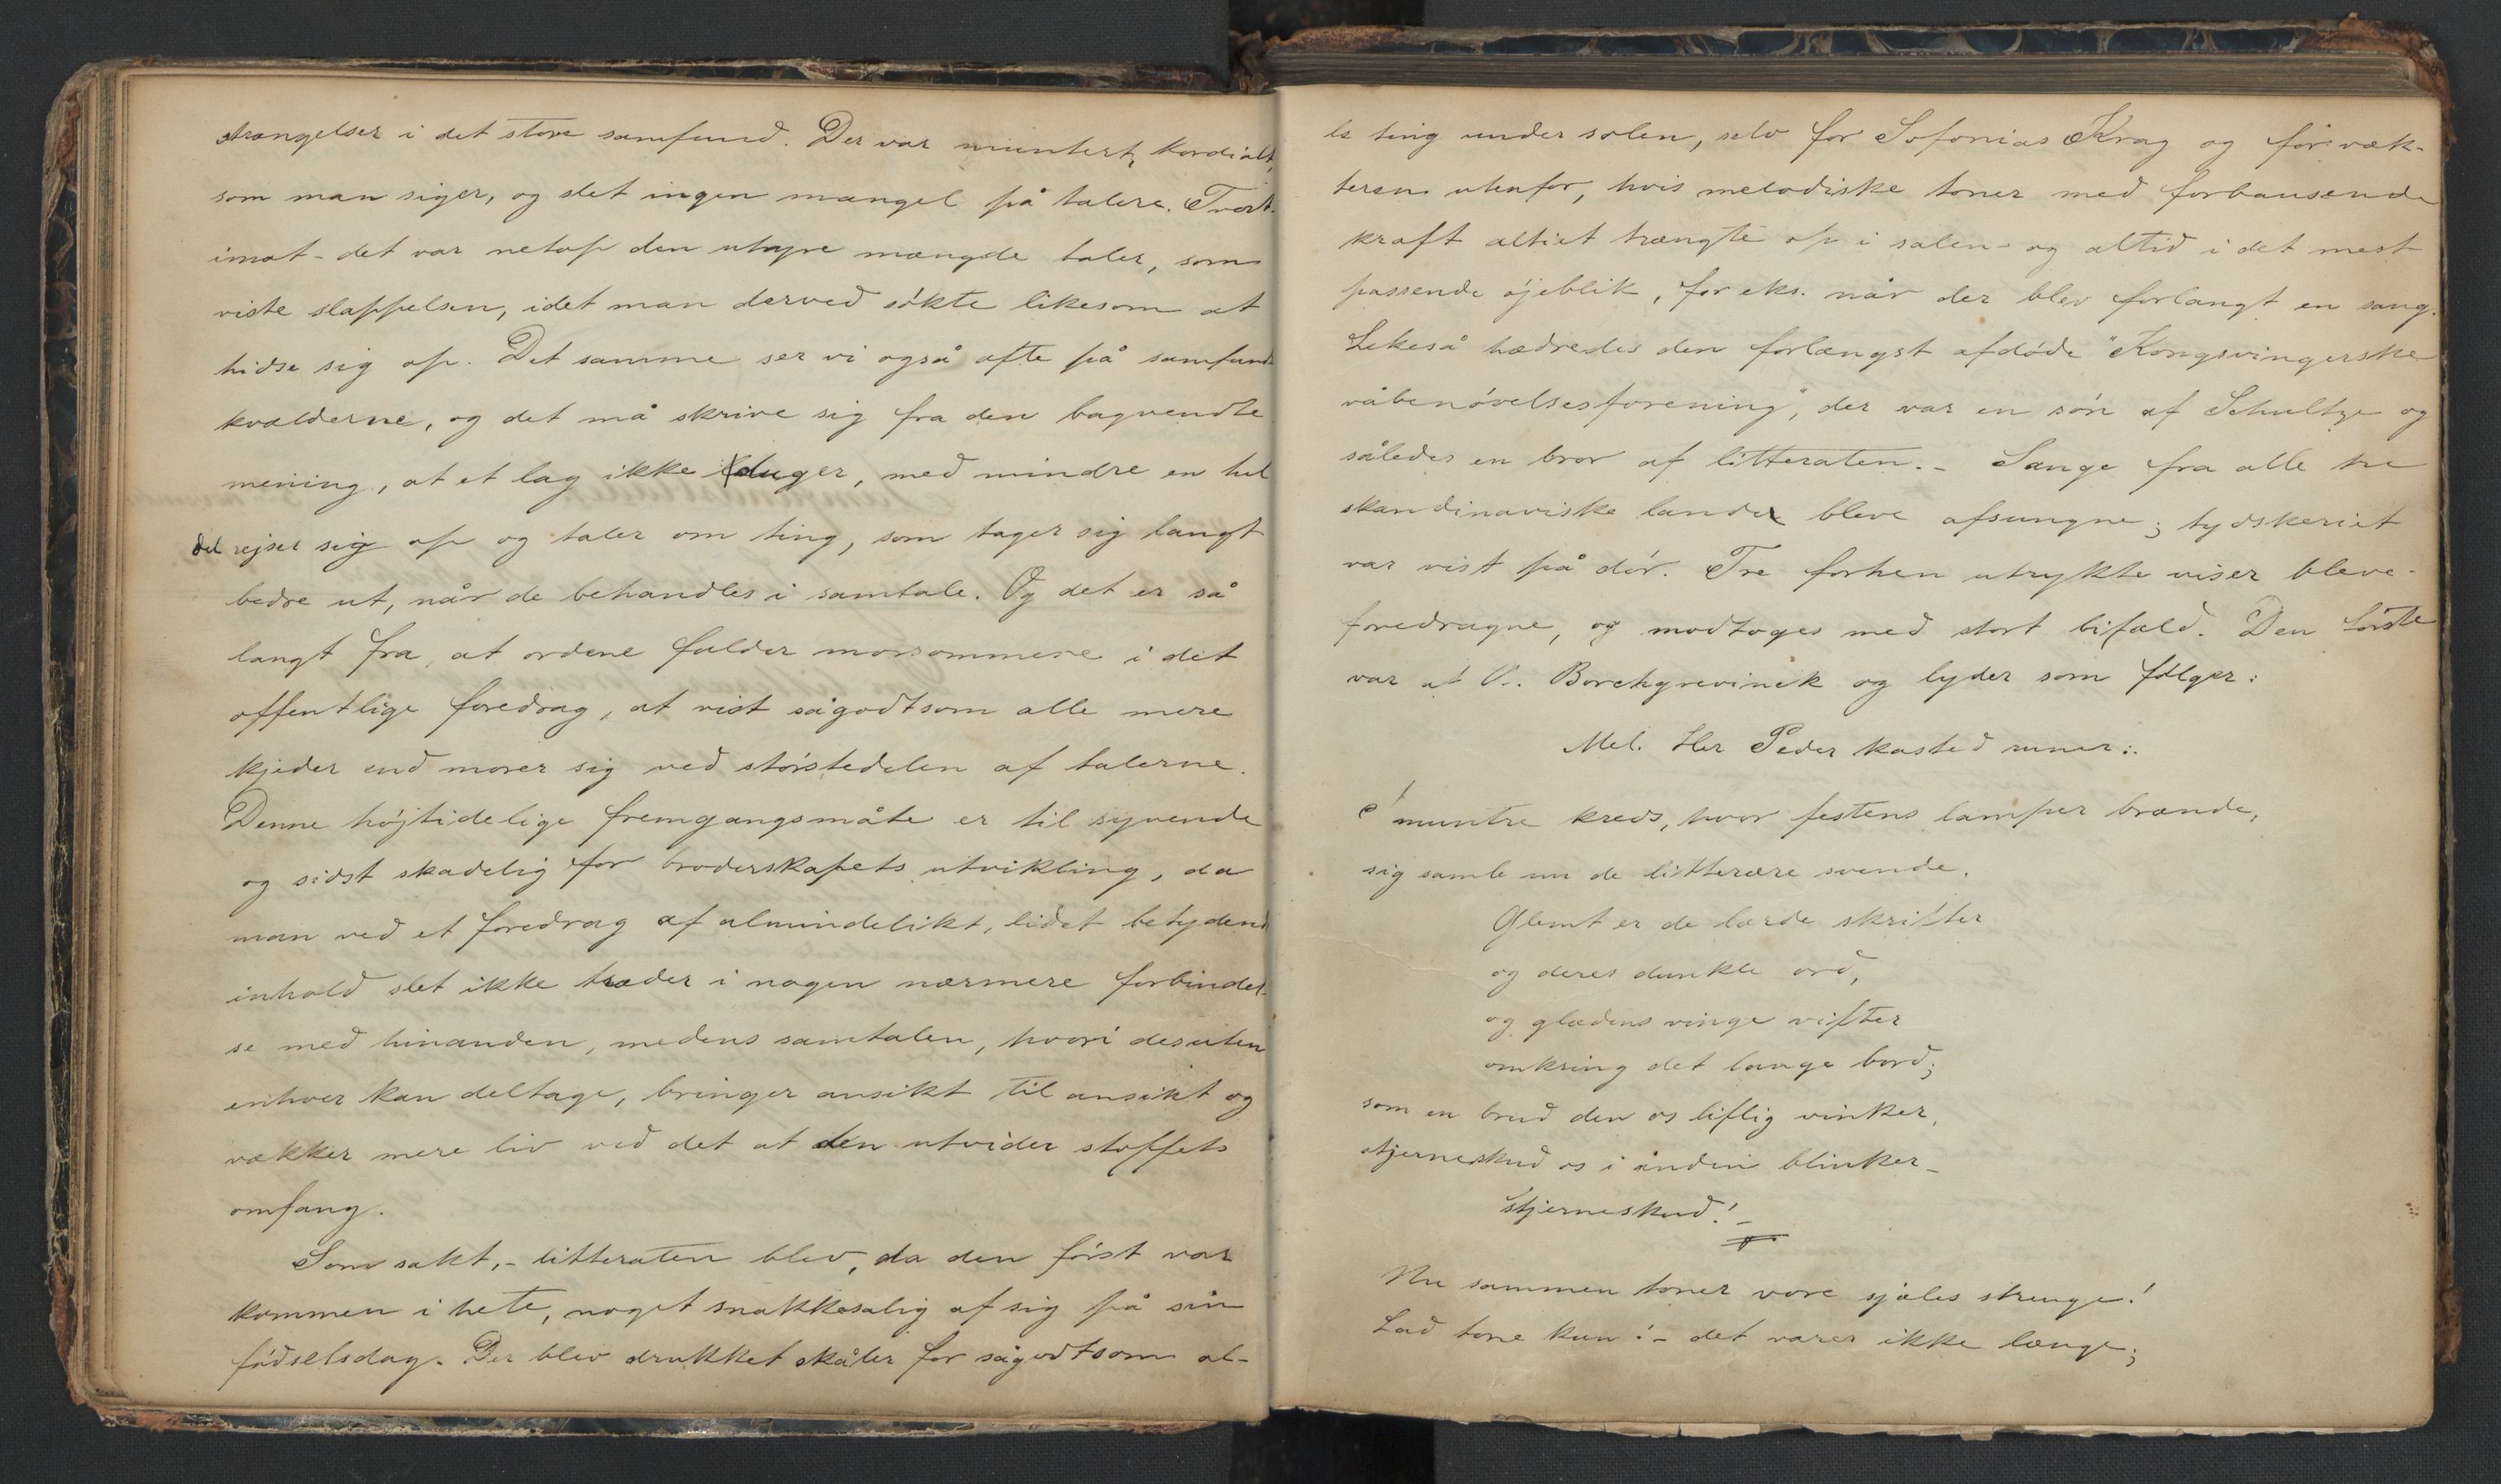 strængelser i det store samfund. Der var muntert, kordialt,
som man siger, og slet ingen mangel på talere. Tvert-
imot - det var netop den utøpre mængde taler, som
viste slappelsen, idet man derved søkte likesom at
hidse sig op. Det samme ser vi også ofte på samfunds-
kvælderne, og det må skrive sig fra den bagvendte
mening, at et lag ikke duger, med mindre en hel
del rejser sig op og taler om ting, som tager sig langt
bedre ut, når de behandles i samtale. Og det er så
langt fra, at ordene falder morsommere i det
offentlige foredrag, at vist sågodtsom alle mere
kjeder end morer sig ved størstedelen af talerne.
Denne højtidelige fremgangsmåte er til syvende
og sidst skadelig for broderskapets utvikling, da
man ved et foredrag af almindelikt, lidet betydend
inhold slet ikke træder i nogen nærmere forbindel-
se med hinanden, medens samtalen, hvori desuten
enhver kan deltage, bringer ansikt til ansikt og
vækker mere liv ved det at den utvider stoffets
omfang.
Som sakt, - litteraten blev, da den først var
kommen i hete, noget snakkesalig af sig på sin
fødselsdag. Der blev drukket skåler for sågodtsom al-
le ting under solen, selv for Sofonias Krag og for væk-
teren utenfor, hvis melodiske toner med forbausende
kraft altiet trængte op i salen - og altid i det mest
passende øjeblik, for eks. når der blev forlangt en sang.
Lekeså hædredes den forlængst afdøde "Kongsvingerske
våbenøvelsesforening", der var en søn af Schultze og
således en bror af litteraten. - Sange fra alle tre
skandinaviske lande bleve afsungne; tydskeriet
var vist på dør. Tre forhen utrykte viser bleve
foredragne, og modtoges med stort bifald. Den første
var af O. Borchgrevinck og lyder som følger:
Mel. Her Peder kasted runer:.
I muntre kreds, hvor festens lamper brænde,
sig samle nu de litterære svende.
Glemt er de lærde skrifter
og deres dunkle ord,
og glædens vinge vifter
omkring det lange bord;
som en brud den os liflig vinker,
stjerneskud os i ånden blinker -
Stjerneskud! -
Nu sammen toner vore sjæles strenge!
Lad tone kun! - det varer ikke længe;